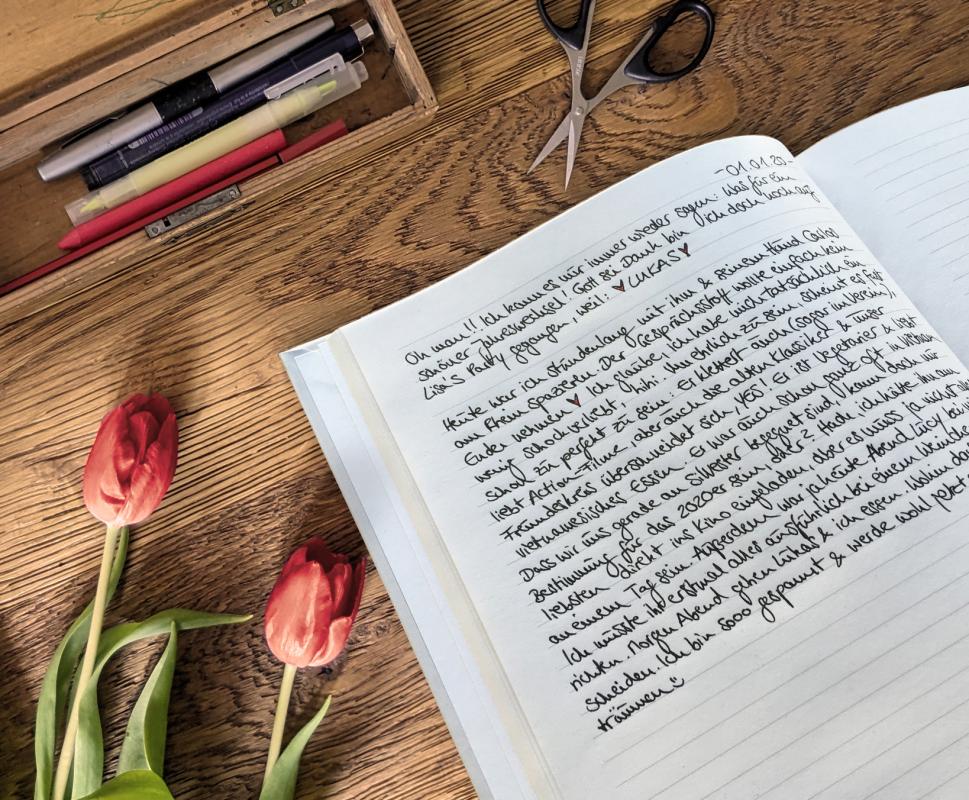 -01.01.20-
Oh man!! Ich kann es nur immer wieder sagen: Was für ein
schöner Jahreswechsel! Gott sei Dank bin ich doch noch auf
Lisa's Party gegangen, weil: ♥LUKAS♥
Heute war ich stundenlang mit ihm & seinem Hund Casino
am Rhein spazieren. Der Gesprächsstoff wollte einfach kein
Ende nehmen ♥ Ich glaube, ich habe mich tatsächlich ein
wenig schockverliebt. Hihi. Um ehrlich zu sein, scheint es fast
schon zu perfekt zu sein: Er klettert auch (sogar im Verein),
liebt Action-Filme, aber auch die alten Klassiker & unser
Freundeskreis überschneidet sich, YES! Er ist Vegetarier & liebt
vietnamesisches Essen. Er war auch schon ganz oft in
Dass wir uns gerade an Silvester begegnet sind, kann doch nur
Bestimmung für das 2020er sein, oder? Hach, ich hätte ihn am
liebsten direkt ins Kino eingeladen, aber es muss ja nicht alles
an einem Tag sein. Außerdem war ja heute Abend Lucy bei mir
Ich musste ihr erstmal alles ausführlich bei einem Weinchen
richten. Morgen Abend gehen Lukas & ich essen. Wohin darf
scheiden. Ich bin sooo gespannt & werde wohl jetzt
träumen